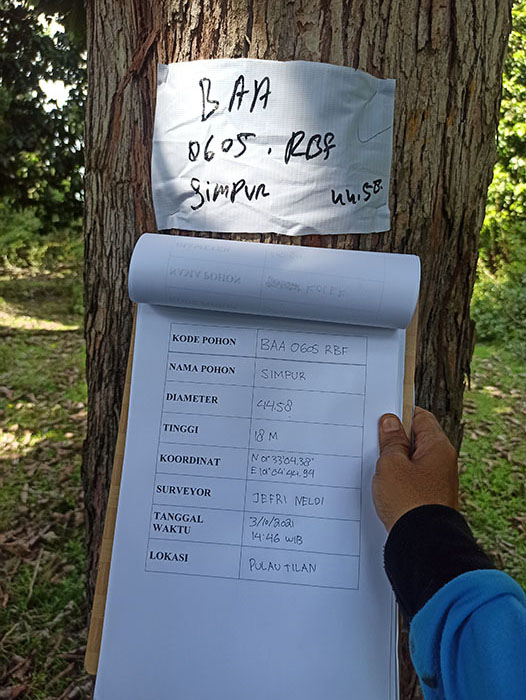 BAA
0605. RBF
SIMPUR 44.58.
KODE POHON BAA 0605 RBF
NAMA POHON SIMPUR
DIAMETER 44.58
TINGGI 18 M
KOORDINAT N 0°33'04.38"
E 101°04'44.94
SURVEYOR JEFRI NELDI
TANGGAL 3/10/2021
WAKTU 14:46 WIB
LOKASI PULAU TILAN